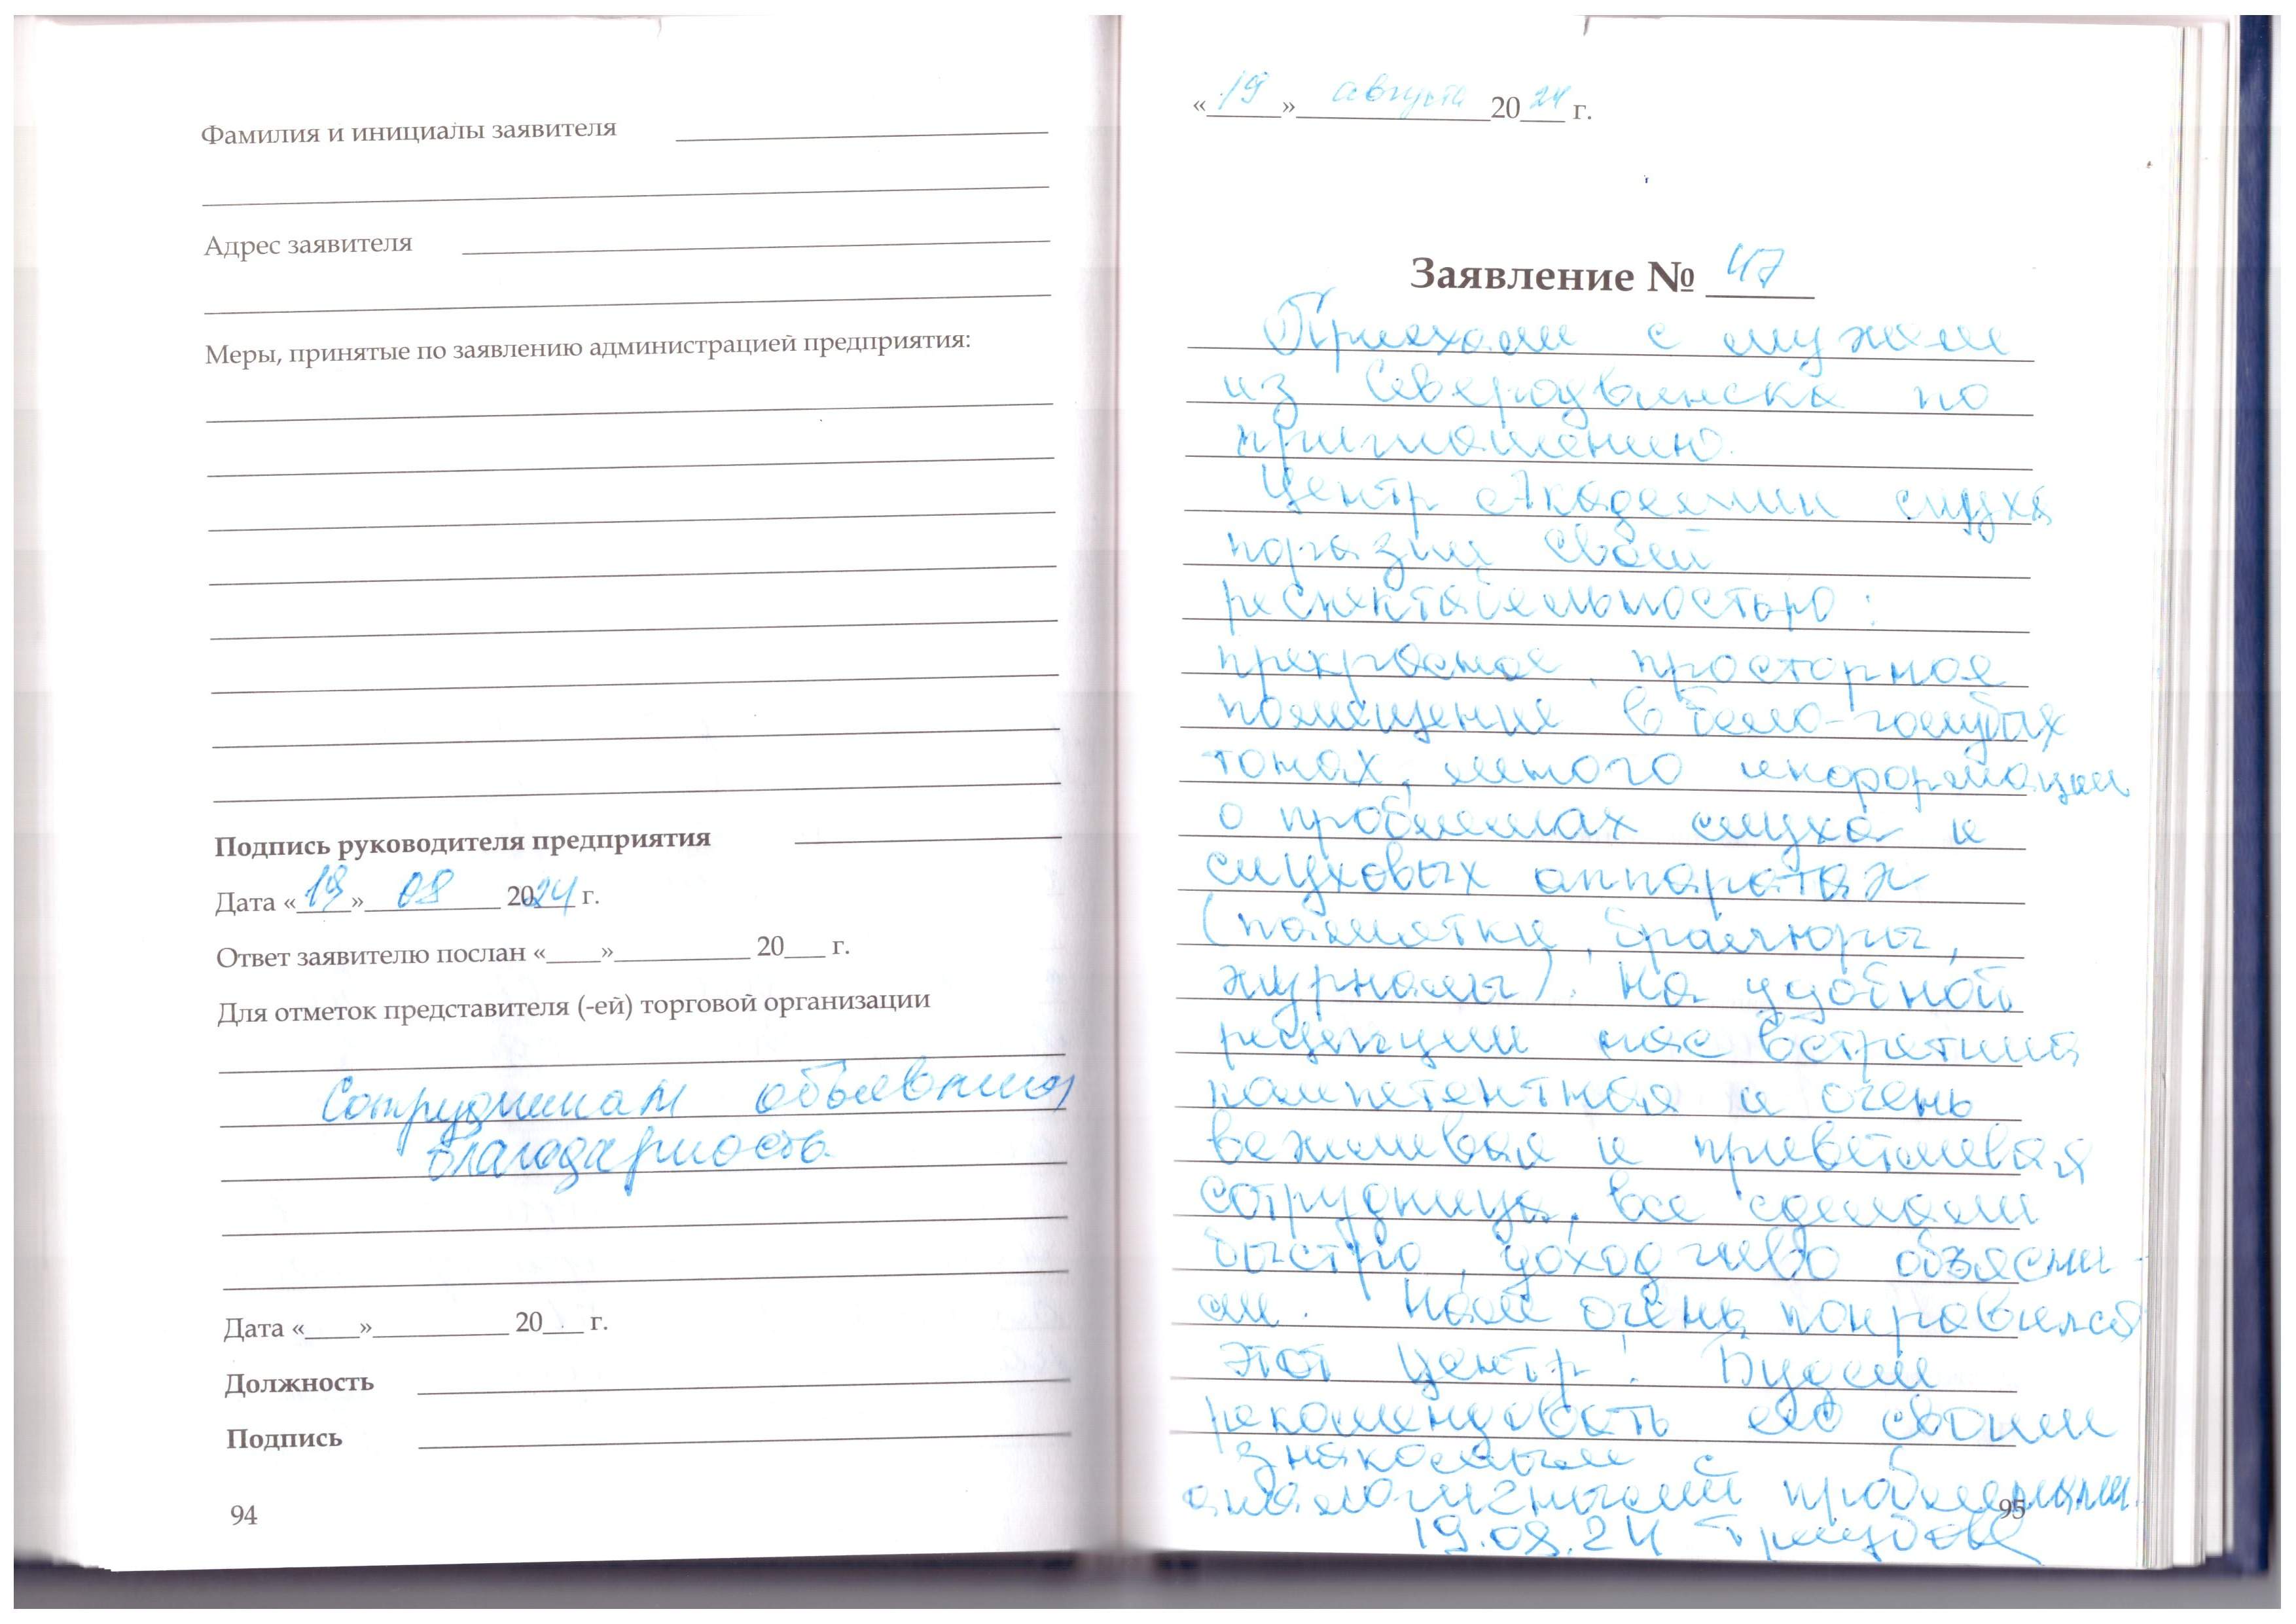 Фамилия и инициалы заявителя
Адрес заявителя
Меры, принятые по заявлению администрацией предприятия:
Подпись руководителя предприятия
Дата «19» 08 2024 г.
Ответ заявителю послан «____»__________ 20___ г.
Для отметок представителя (-ей) торговой организации
Сотрудникам объявлена
благодарность
Дата «____»__________ 20___ г.
Должность
Подпись
94
«19» августа 2024 г.
Заявление № 47
Приехали с мужем
из Северодвинска по
приглашению.
Центр Академии слуха
поразил своей
респектабельностью:
прекрасное, просторное
помещение в бело-голубых
тонах, много информации
о проблемах слуха и
слуховых аппаратах
(памятки, брошюры,
журналы). На удобной
рецепции нас встретила
компетентная и очень
вежливая и приветливая
сотрудница, все сделали
быстро, доходчиво объясни-
ли. Нам очень понравился
этот центр! Будем
рекомендовать его своим
знакомым с
аналогичными проблемами.
95
19.08.24